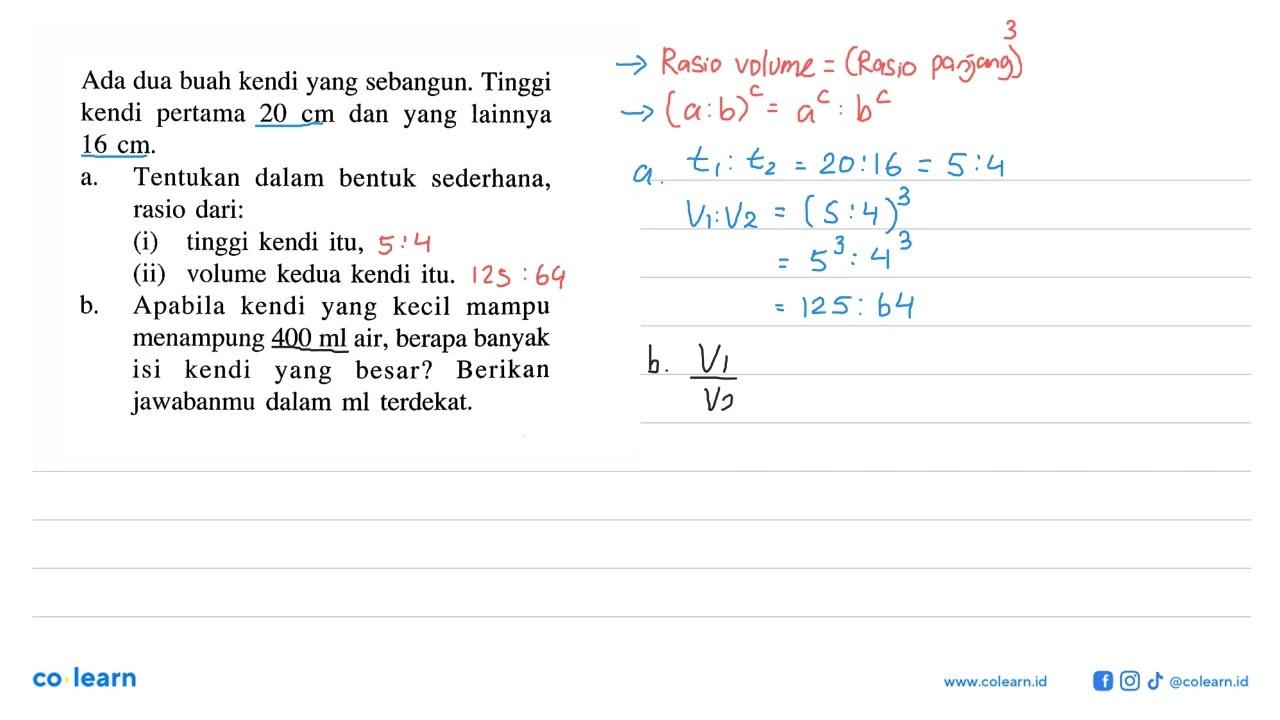 Ada dua buah kendi yang sebangun. Tinggi
kendi pertama 20 cm dan yang lainnya
16 cm.
a. Tentukan dalam bentuk sederhana,
rasio dari:
(i) tinggi kendi itu, 5:4
(ii) volume kedua kendi itu. 125:64
b. Apabila kendi yang kecil mampu
menampung 400 ml air, berapa banyak
isi kendi yang besar? Berikan
jawabanmu dalam ml terdekat.
→ Rasio volume = (Rasio panjang)³
→ (a:b)ᶜ = aᶜ : bᶜ
a. t₁ : t₂ = 20:16 = 5:4
V₁:V₂ = (5:4)³
= 5³ : 4³
= 125 : 64
b. V₁
V₂
co learn
www.colearn.id
@colearn.id